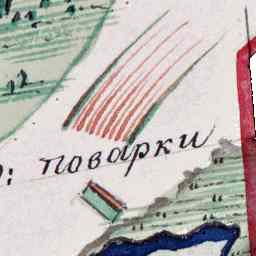 : поварки